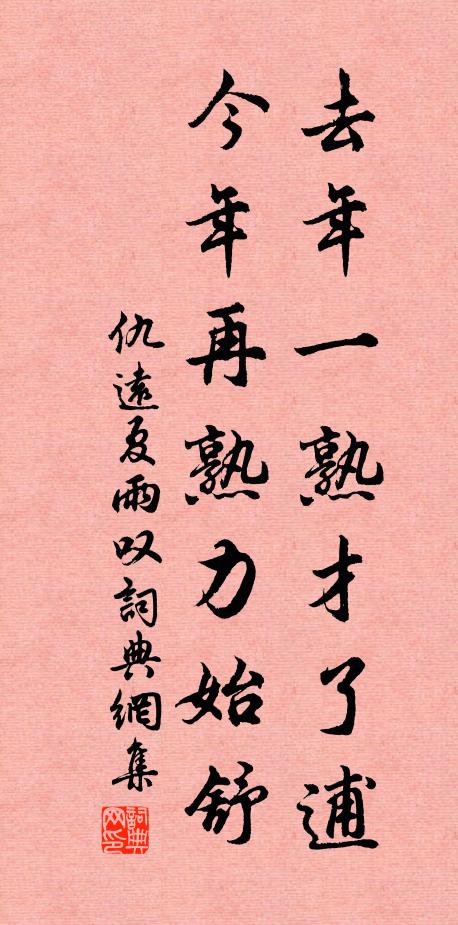 去年一熟才了逋
今年再熟力始舒
仇遠夏雨叹詞典網集
詞典网印